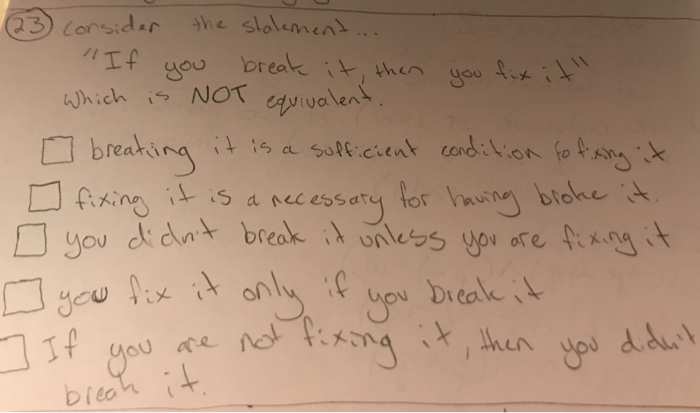 23 Consider the statement...
"If you break it, then you fix it"
Which is NOT equivalent.
breaking it is a sufficient condition fo fixing it
fixing it is a necessary for having broke it.
you didn't break it unless you are fixing it
you fix it only if you break it
If you are not fixing it, then you didn't
break it.